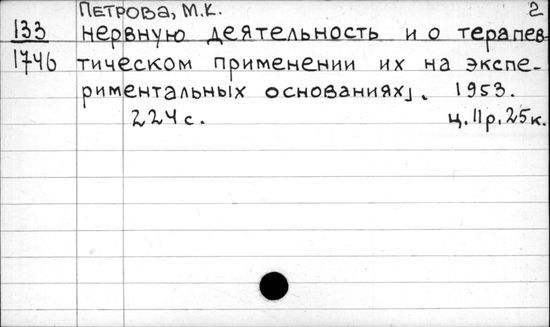 ПЕТРОВА, М.К. 2
133 нервную деятельность и о терапев
1746 тическом применении их на экспе-
риментальных основаниях]. 1953.
224 с. ц. 11 р. 25 к.